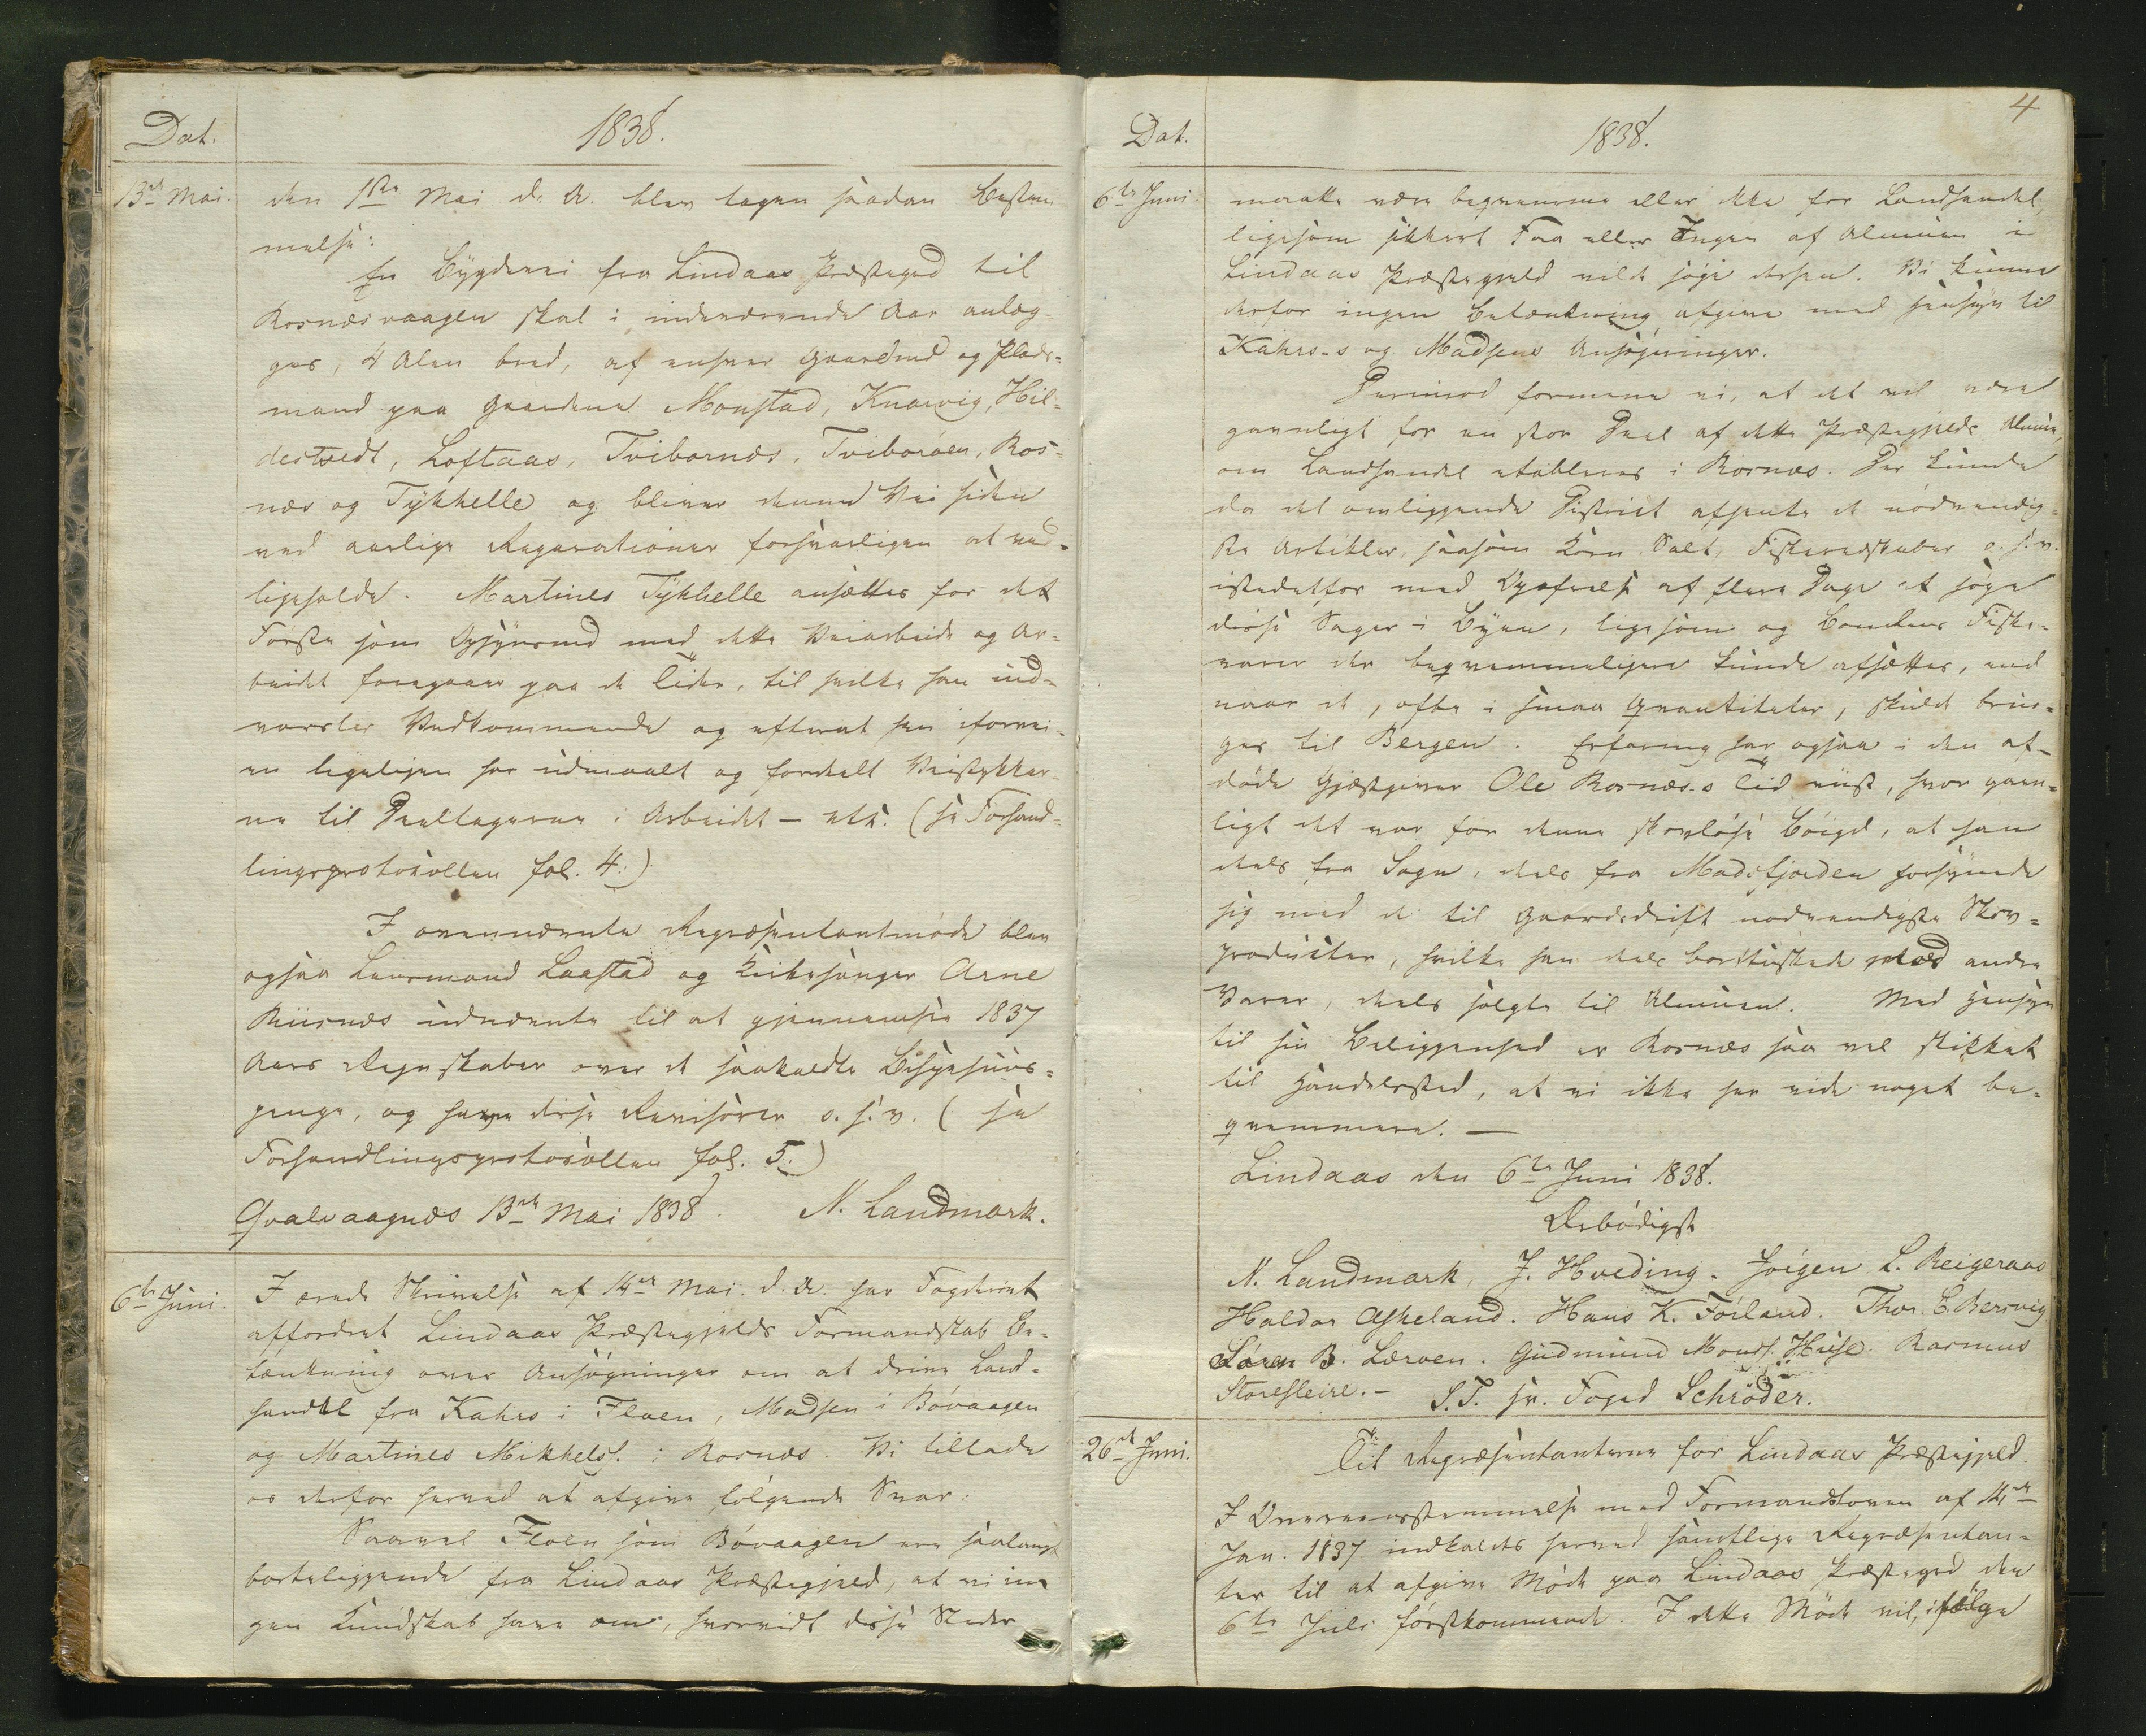 Dat.
1838.
13de Mai.
den 1ste Mai d. A. blev tagen saadan Bestem
melse:
En Bygdevei fra Lindaas Præstegaard til
Rosnæsvaagen skal i indeværende Aar anlæg-
ges, 4 Alen bred, af enhver Gaardmd og Plads-
mand paa Gaardene Monstad, Knarvig, Hil-
destvedt, Loftaas, Tvibornæs, Tviboröen, Ros-
næs og Tykhelle og bliver denne Vei siden
ved aarlige Reparationer forsvarligen at ved-
ligeholde. Martines Tykhelle ansættes for det
Förste som Opsynsmd med dette Veiarbeide og Ar-
beidet foregaaer paa de Tider, til hvilke han ind-
varsler Vedkommende og efterat han iforvei-
en ligeligen har udmaalt og fordeelt Veistykker-
ne til Deeltagerne i Arbeidet – etc. (se Forhand-
lingsprotokollen fol. 4.)
I ovennævnte Repræsentantmöde blev
ogsaa Leensmand Laastad og Kirkesanger Arne
Riisnæs udnævnte til at gjennemsee 1837
Aars Regnskaber over de saakaldte Bispehuus-
penge, og have disse Revisorer o. s. v. (se
Forhandlingsprotokollen fol. 5.)
Qvalvaagnæs 13de Mai 1838. N. Landmark.
6te Juni.
I ærede Skrivelse af 14de Mai. d. A. har Fogderiet
affordret Lindaas Præstegjelds Formandskab Be-
tænkning over Ansögninger om at drive Land-
handel fra Kahrs i Floen, Madsen i Bövaagen
og Martines Mikkels. i Rosnæs. Vi tillade
os derfor herved at afgive fölgende Svar:
Saavel Floen som Bövaagen ere saalangt
bortliggende fra Lindaas Præstegjeld, at vi in-
gen Kundskab have om, hvorvidt disse Steder
4
Dat.
1838.
6te Juni
maatte være beqvemme eller ikke for Landhandel,
ligesom sikkert Faa eller Ingen af Almuen i
Lindaas Præstegjeld vilde söge dersen. Vi kunne
derfor ingen Betænkning afgive med Hensyn til
Kahrs-s og Madsens Ansögninger.
Derimod formene vi, at det vil være
gavnligt for en stor Deel af dette Præstegjelds Almue,
om Landhandel etableres i Rosnæs. Der kunde
da det omliggende District afhente de nödvendig-
ste Artikler, saasom Korn, Salt, Fiskeredskaber o. s. v.
istedetfor med Opofrelse af flere Dage at söge
disse Sager i Byen, ligesom og Bondens Fiske-
varer der beqvemmeligere kunde afsættes, end
naar de, ofte i smaa Qvantiteter, skulde brin-
ges til Bergen. Erfaring har ogsaa i den af-
döde Gjæstgiver Ole Rosnæs-s Tid viist, hvor gavn-
ligt det var for denne skovlöse Böigd, at han
deels fra Sogn, deels fra Madsfjorden forsynede
sig med de til Gaardsdrift nödvendigste Skov-
producter, hvilke han deels bortbyttede mod andre
Varer, deels solgte til Almuen. Med Hensyn
til sin Beliggenhed er Rosnæs saa vel skikket
til Handelssted, at vi ikke her vide noget be-
qvemmere. —
Lindaas den 6te Juni 1838.
Ærbödigst
N. Landmark, J. Hveding. Jörgen L. Reigeraas
Haldor Askeland. Hans K. Föiland. Thor E. Bersvig
Sören B. Lerven. Gudmund Monss. Huse. Rasmus
Storeseire. – S. T. Hr. Foged Schröder.
26de Juni.
Til Repræsentanterne for Lindaas Præstegjeld.
I Overeensstemmelse med Formandsloven af 14de
Jan. 1837 indkaldes herved samtlige Repræsentan-
ter til at afgive Möde paa Lindaas Præstegaard den
6te Juli förstkommende. I dette Möde vil, ifölge